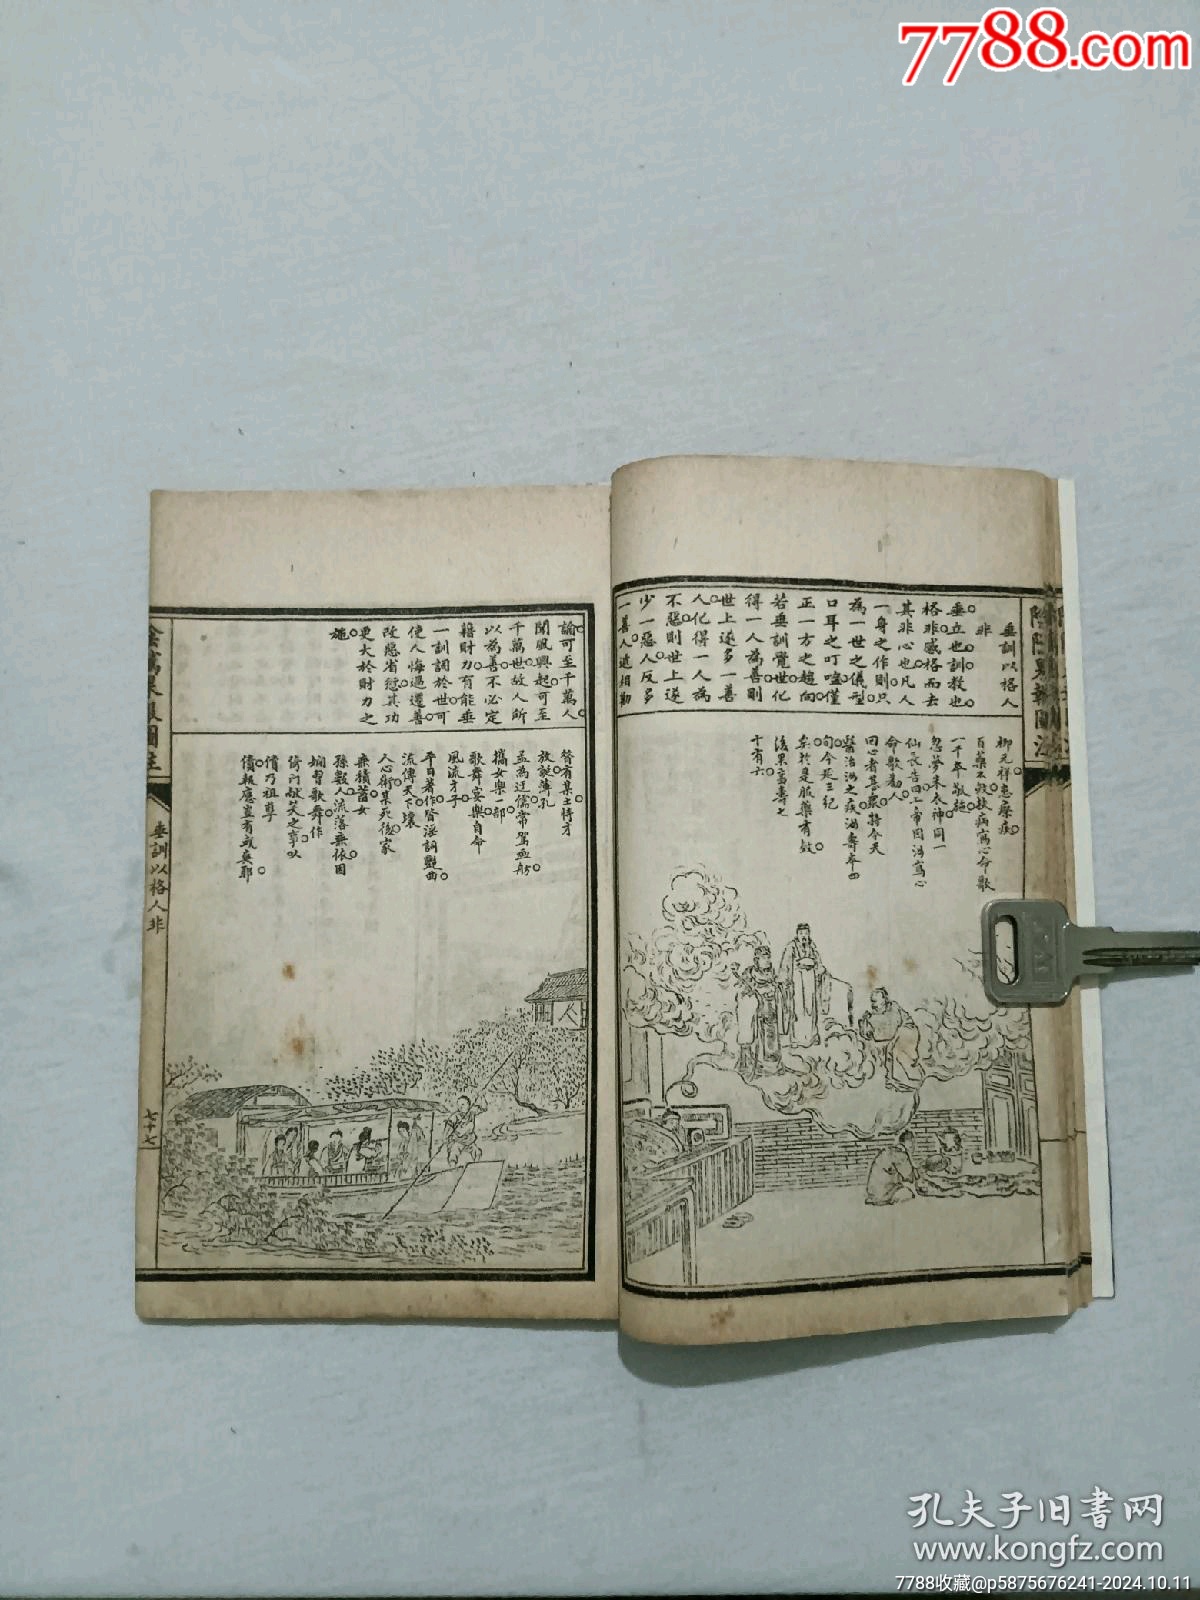 7788.com
垂訓以格人
非
垂立也訓教也
格非感格而去
其非心也凡人
一身之作則只
為一世之儀型
口耳之叮嚀僅
正一方之趨向
若垂訓覺世化
得一人為善則
世上遂多一善
人化得一人為
不惡則世上遂
少一惡人反多
一善人遞相勸
柳元祥患瘵疾
百藥不效扶病寫心命歌
一千年敬施
忽夢朱衣神同一
仙長告曰上帝因汝寫心
命歌勸人
回心者甚眾特令天
醫治汝之疾汝壽卒四
旬今延三紀
矣於是服藥有效
後果富壽之
十有六
諭可至千萬人
聞風興起可至
千萬世故人所
以為善不必定
籍財力有能垂
一訓調於世可
使人悔過遷善
改惡省愆其功
更大於財力之
施
昔有某士恃才
放誕薄孔
孟為迂儒常駕画舫
攜女樂一部
歌舞宴樂自命
風流才子
平日著作皆淫詞艷曲
流傳天下壞
人心術某死後家
無積蓄女
孫數人流落無依因
嫻習歌舞作
倚门献笑之事以
償乃祖孽
債報應豈有或爽耶
垂訓以格人非
七十七
孔夫子旧書网
www.kongfz.com
7788收藏@p5875676241-2024.10.11